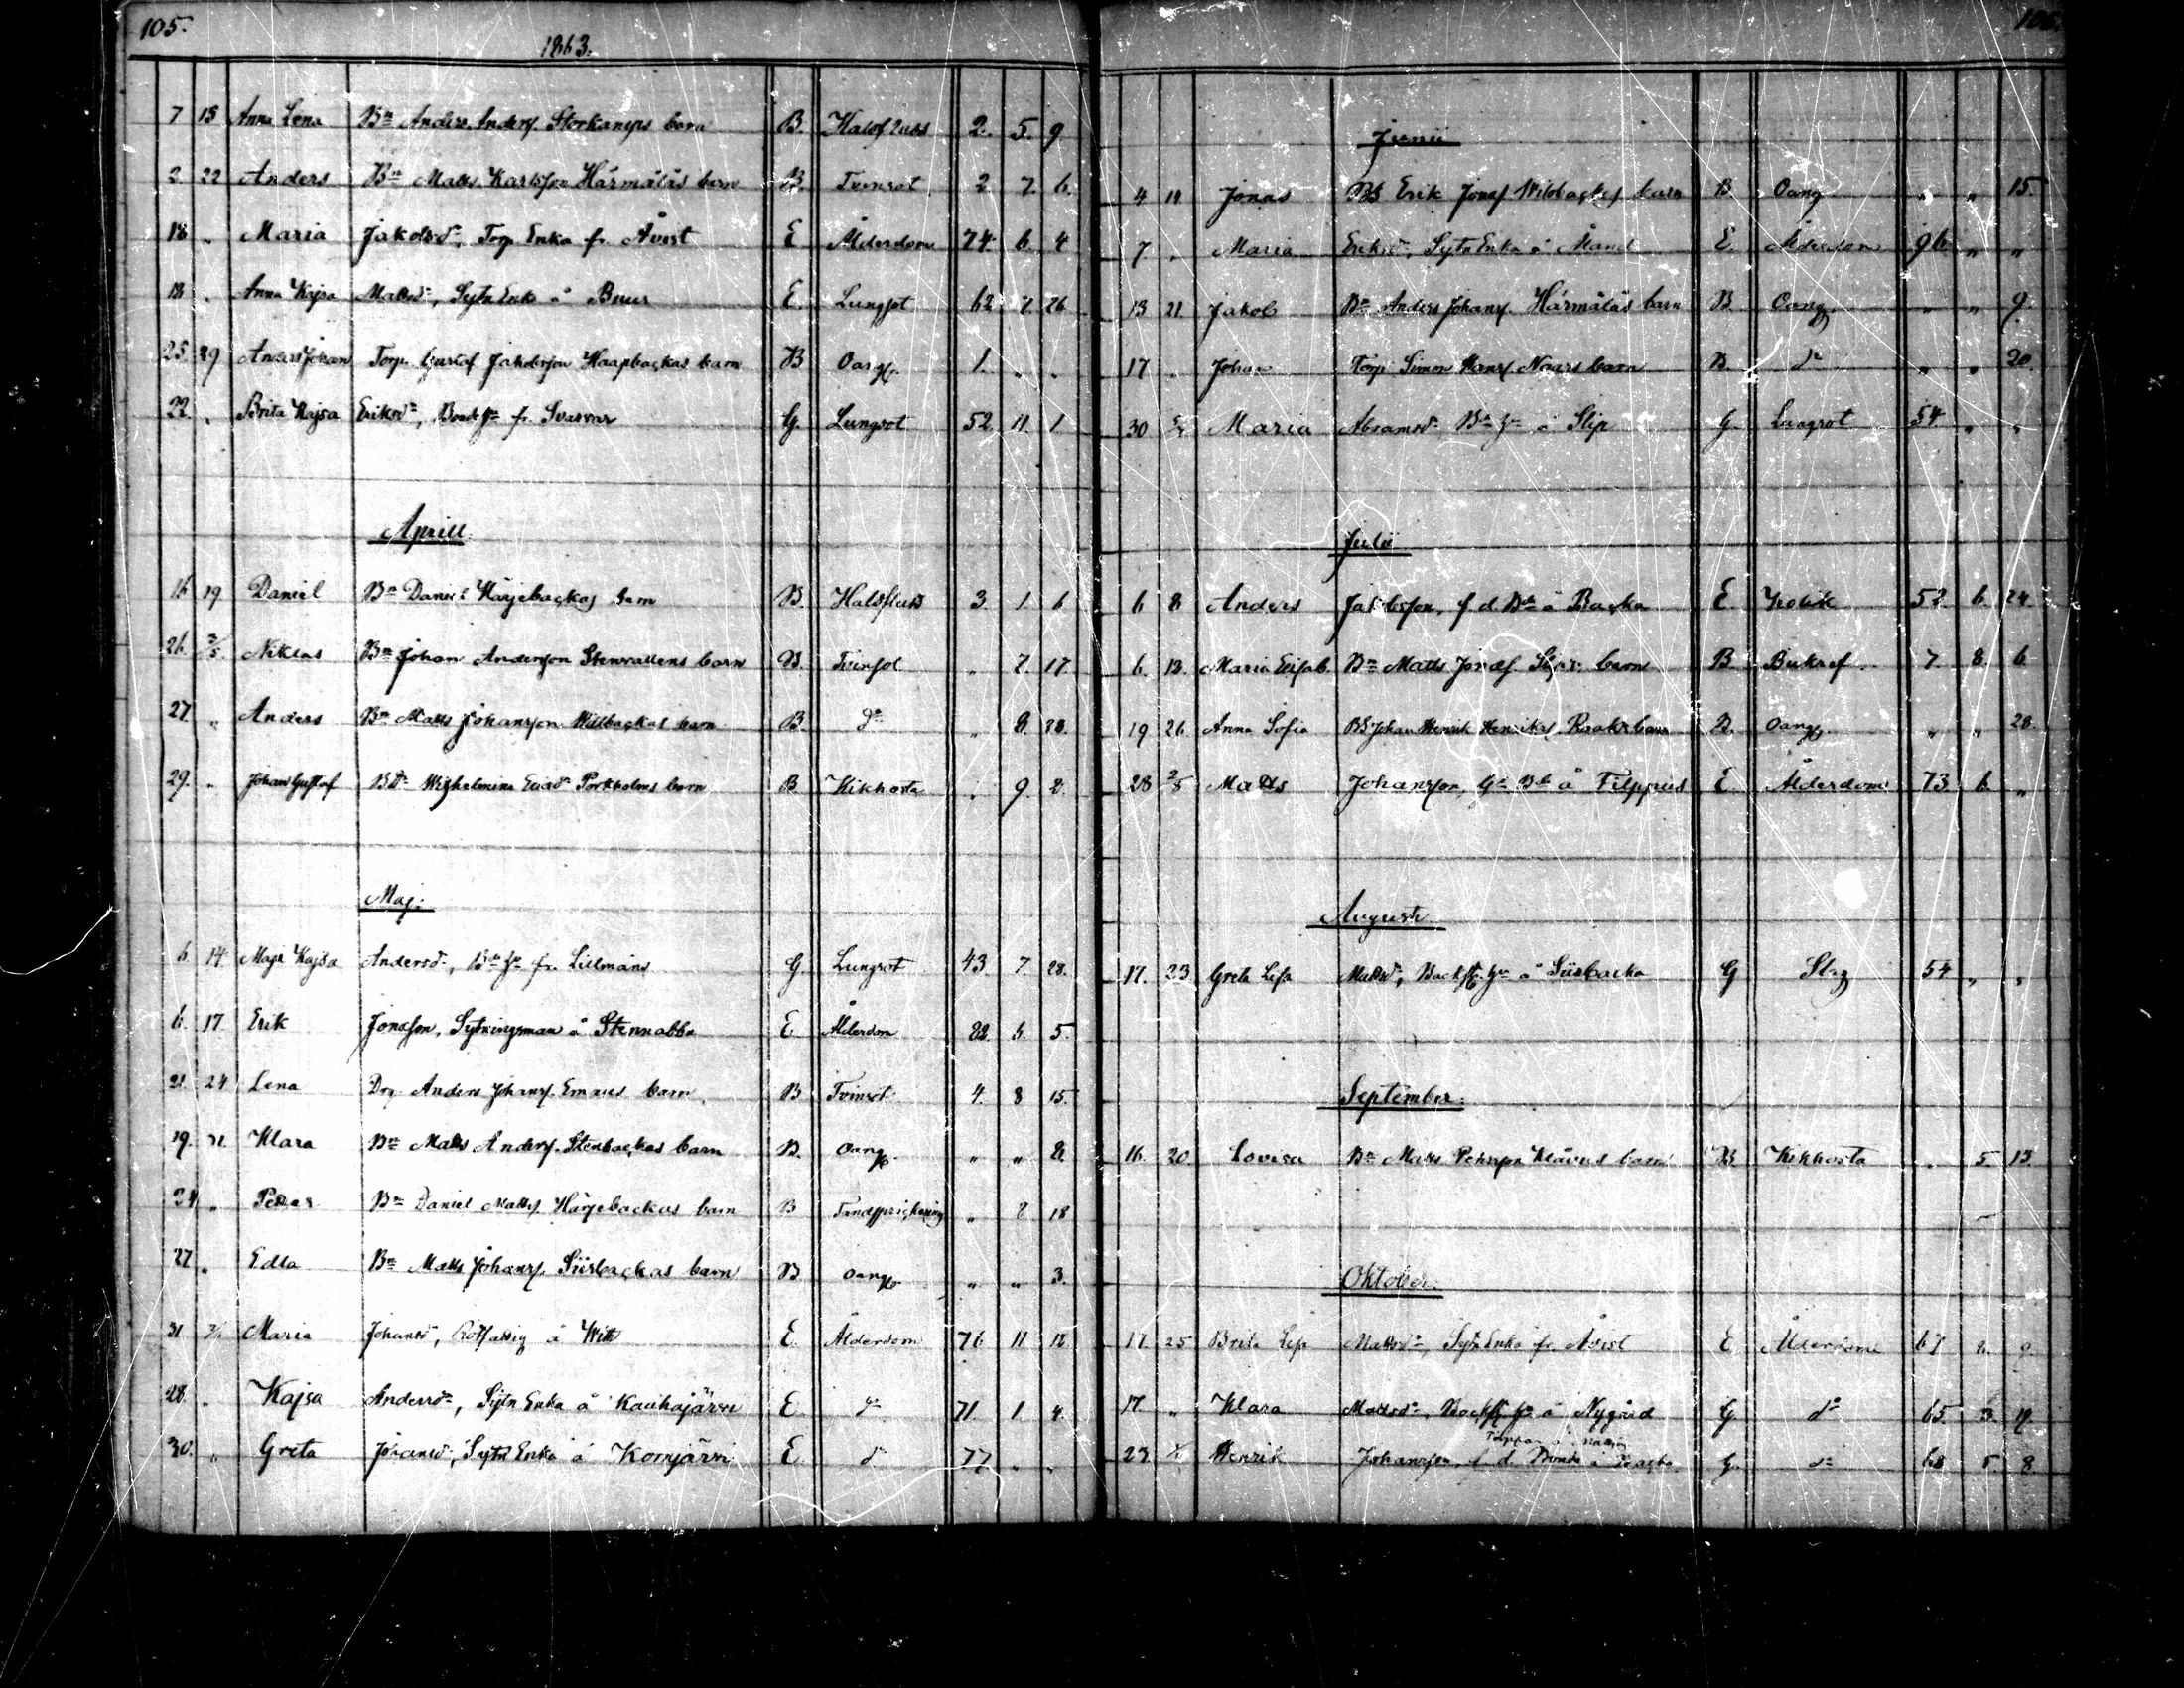 105.
1863.
7 15 Anna Lena Bn Anders Andersf. Storkamps barn B. Halsfluss 2. 5. 9
2 22 Anders Bn Matts Karlsson Härmäläs barn B. Tvinsot 2 7. 6.
18 " Maria Jakobsd:, Torp. Enka fr. Åvist E Ålderdom 74. 6. 4
18 " Anna Kajsa Mattsd:, Sytn Enka å Buur E. Lungsot 62 7. 26
25. 29 Anders Johan Torp. Gustaf Jakobsson Haapbackas barn B Oang. 1. " "
22. " Brita Kajsa Eriksd:, fr. Svarvar G. Lungsot 52 11. 1
Aprill
16 19 Daniel Bn Daniel Härjebackas barn B. Halsfluss 3. 1 6
26. 3/5 Niklas Bn Johan Andersson Stenvallens barn B. Tvinsot " 7. 17
27 " Anders Bn Matts Johansson Willbackas barn B. do " 8. 28.
29. " Johan Gustaf Wilhelmina Porkholms barn B. Kikhosta " 9. 2.
Maj:
6. 14 Maja Kajsa Andersd:, fr. Lillmåns G. Lungsot 43. 7. 28.
6. 17 Erik Jonsson, Sytningsman å Stennabba E. Ålderdom 82. 6. 5.
21. 24 Lena Drg. Anders Johansf. Emaus barn B Tvinsot 4. 8 15.
19. 31 Klara Bn Matts Andersf. Stenbackas barn B. Oang. " " 8.
24 " Petter Bn Daniel Mattsf. Härjebackas barn B Tandsprickning " 7 18
27. " Edla Bn Matts Johansf. Siirbackas barn B oang. " " 3.
31 Maria Johansd:, Rotfattig å Witt E. Ålderdom 76 11 12.
28. " Kajsa Andersd:, Sytn Enka å Kauhajärvi E. do 71. 1. 4.
30. " Greta Johansd:, Sytn Enka å Komjärvi E do 77 " "
106.
Junii
4 14 Jonas BS Erik Jonsf. Willbackas barn B Oang " " 15.
7 " Maria Eriksd:, Sytn Enka å E. Ålderdom 96 " "
13 21. Jakob Bn Anders Johansf. Härmäläs barn B Oang. " " 9.
17 " Johan Torp. Simon Hansf. Naars barn B. do " " 20.
30 Maria Abramsd: å Slip G. Lungsot 54. " "
Julii
6 8 Anders Jakobsson, f. d. Bd: å Backa E. 52. 6. 24.
6. 12. Maria Elisab. Bn Matts Jonsf. barn B Bukref. 7. 8. 6.
19 26 Anna Sofia BS Johan Henrik Henriksf. barn B. oang. " " 28.
28 2/8 Matts Johansson, å Filppus E. Ålderdom 73. 6. "
Augusti
17. 23 Greta Lisa Mattsd:, å Siirbacka G Slag 54 " "
September:
16. 20. Lovisa Bn Matts Pehrsson Klävus barn B Kikhosta " 5. 13.
Oktober.
17. 25 Brita Lisa Mattsd:, Sytn Enka fr. Åvist E. Ålderdom 67 2. 9
17 " Klara Mattsd:, å Nygård G do 65. 3. 19.
23 Henrik Johansson, f. d. Bonde å G. do 68 5. 8.